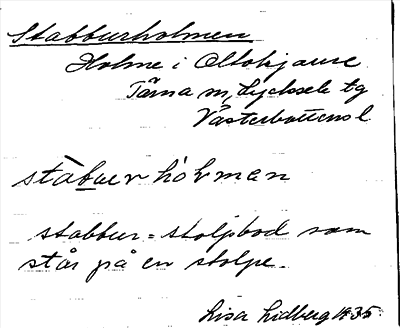 Stabburholmen
Holme i Oltokjaure
Tärna sn, Lycksele tg
Västerbottensl
stàbuer hólman
stabbur = stolpbod som
står på en stolpe.
Lisa Lidberg 1935.